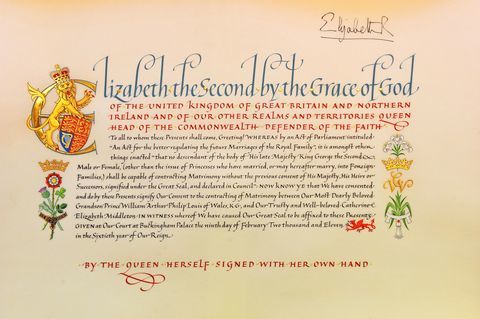 Elizabeth R
Elizabeth the Second by the Grace of God
OF THE UNITED KINGDOM OF GREAT BRITAIN AND NORTHERN
IRELAND AND OF OUR OTHER REALMS AND TERRITORIES QUEEN
HEAD OF THE COMMONWEALTH DEFENDER OF THE FAITH
To all to whom these Presents shall come, Greeting! WHEREAS by an Act of Parliament intituled
"An Act for the better regulating the future Marriages of the Royal Family" it is amongst other
things enacted "that no descendant of the body of His late Majesty King George the Second
Male or Female, (other than the issue of Princesses who have married, or may hereafter marry, into Foreign
Families,) shall be capable of contracting Matrimony without the previous consent of His Majesty, His Heirs or
Successors, signified under the Great Seal, and declared in Council" NOW KNOW YE that We have consented
and do by these Presents signify Our Consent to the contracting of Matrimony between Our Most Dearly Beloved
Grandson Prince William Arthur Philip Louis of Wales, K.G., and Our Trusty and Well-beloved Catherine
Elizabeth Middleton IN WITNESS whereof We have caused Our Great Seal to be affixed to these Presents
GIVEN at Our Court at Buckingham Palace the ninth day of February Two thousand and Eleven
in the Sixtieth year of Our Reign.
BY THE QUEEN HERSELF SIGNED WITH HER OWN HAND